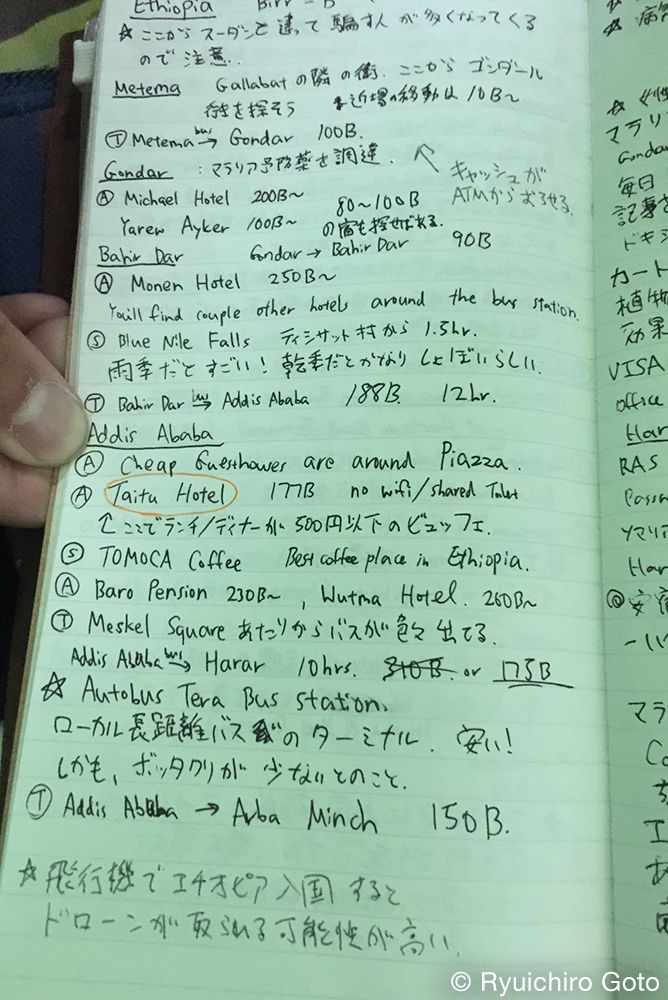 Ethiopia Birr = B
☆ ここからスーダンと違って騙す人が多くなってくる
ので注意..
Metema Gallabatの隣の街. ここから ゴンダール
行きを探そう ※近場の移動は 10B~
Ⓣ Metema bus→ Gondar 100B.
Gondar : マラリア予防薬を調達. ↖ キャッシュが
ATMからおろせる.
Ⓐ Michael Hotel 200B~ 80~100B
Yarew Ayker 100B~ の宿を探せばある.
Bahir Dar Gondar → Bahir Dar 90B
Ⓐ Monen Hotel 250B~
You'll find couple other hotels around the bus station.
Ⓢ Blue Nile Falls ティシサット村から 1.5hr.
雨季だとすごい! 乾季だとかなりしょぼいらしい.
Ⓣ Bahir Dar bus→ Addis Ababa 188B. 12hr.
Addis Ababa
Ⓐ Cheap Guesthouses are around Piazza.
Ⓐ Taitu Hotel 177B no wifi/shared Toilet
↑ ここでランチ/ディナーが 500円以下のビュッフェ.
Ⓢ TOMOCA Coffee Best coffee place in Ethiopia.
Ⓐ Baro Pension 230B~ , Wutma Hotel. 260B~
Ⓣ Meskel Square あたりからバスが色々出てる.
Addis Ababa bus→ Harar 10hrs. 310B. or 175B
☆ Autobus Tera Bus station.
ローカル長距離バスのターミナル. 安い!
しかも, ボッタクリが少ないとのこと.
Ⓣ Addis Ababa → Arba Minch 150B.
☆飛行機でエチオピア入国すると
ドローンが取られる可能性が高い.
マラリ
Gondar
毎日
記事を
ドキシ
カート
植物
効果
VISA
office
Har
RAS
Passw
Yマリア
Har
@安宿
一バ
マラ
Co
エ
© Ryuichiro Goto